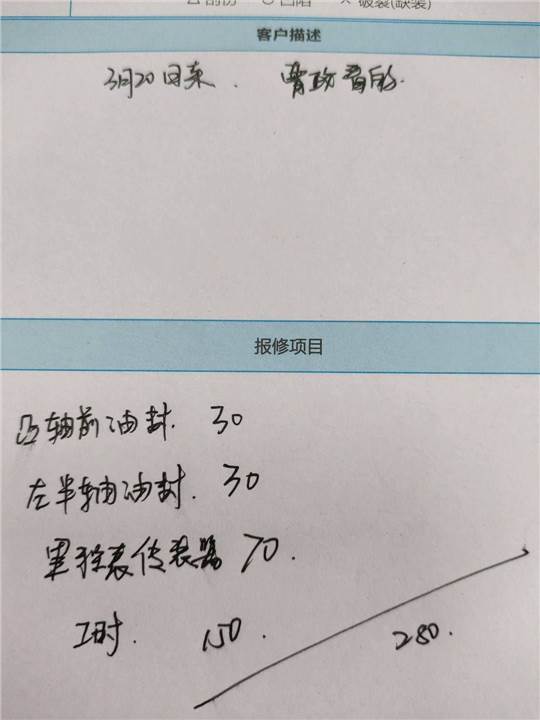 客户描述
3月20日来.
报修项目
凸轴前油封. 30
左半轴油封. 30
里程表传感器 70.
工时. 150. 280.